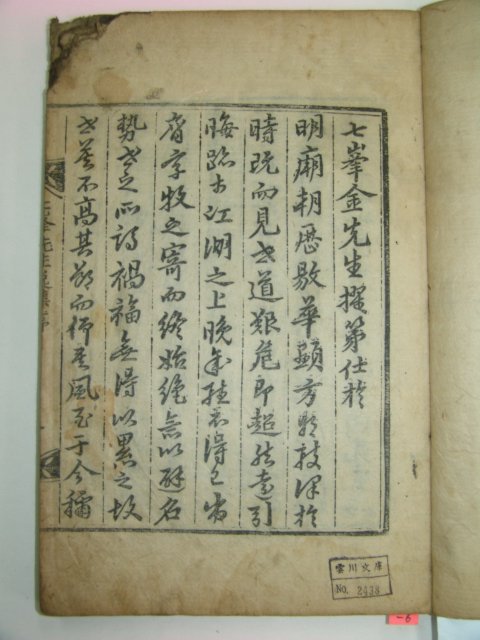 七峯金先生擢第仕於
明廟朝歷敭華顯方
時旣而見世道艱危卽超然遠引
晦跡於江湖之上晩年雖不得已當
字牧之寄而終始絶意以避名
勢世之所謂禍福無得以累之故
世莫不高其節而仰其風至于今稱
雲川文庫
No. 2438
-6